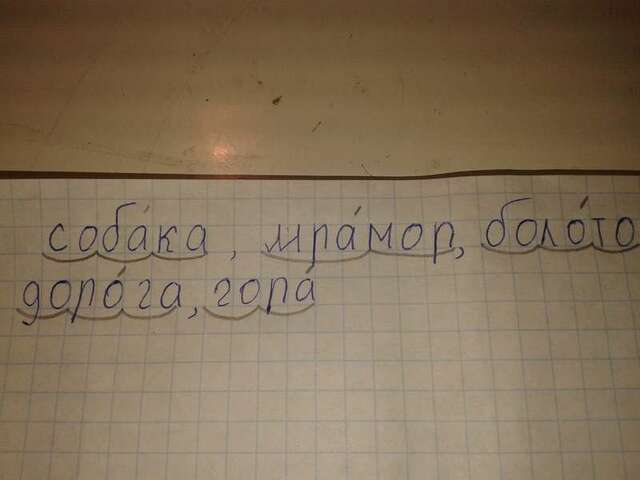 соба́ка, мра́мор, боло́то
доро́га, гора́